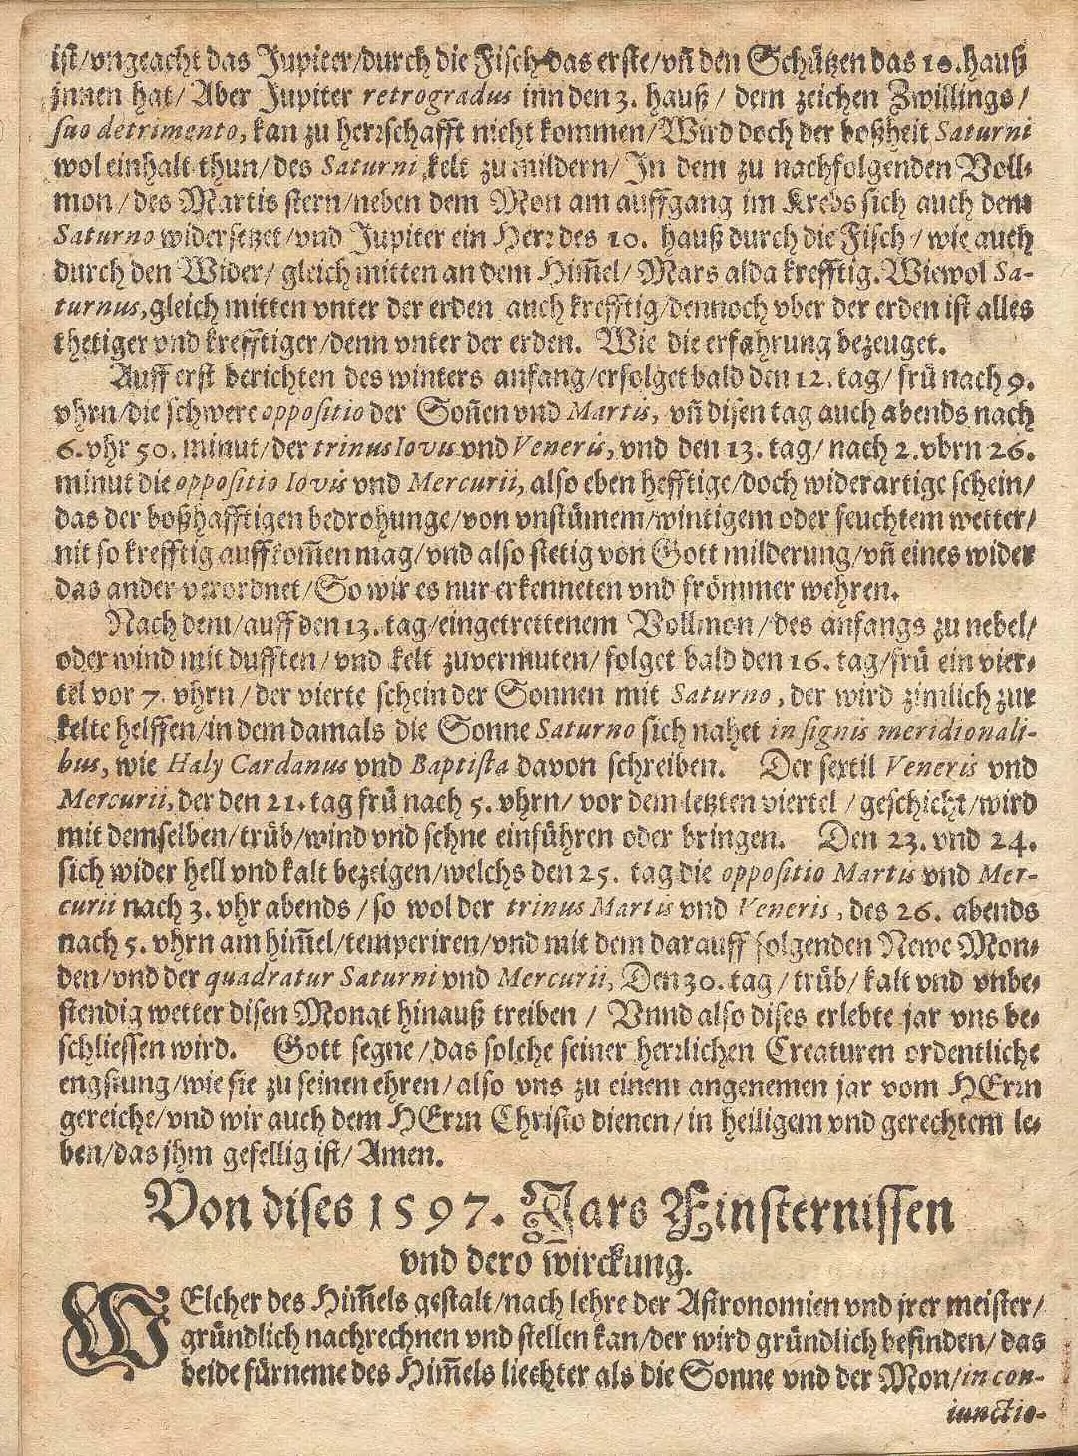 ist/vngeacht das Jupiter/durch die Fisch das erste/vñ den Schützen das 10.hauß
jnnen hat/ Aber Jupiter retrogradus inn den 3. hauß / dem zeichen Zwillings/
suo detrimento, kan zu herrschafft nicht kommen/Wird doch der boßheit Saturni
wol einhalt thun/des Saturni kelt zu mildern/ In dem zu nachfolgenden Voll⸗
mon/des Martis stern/neben dem Mon am auffgang im Krebs sich auch dem
Saturno widersetzet/vnd Jupiter ein Herr des 10. hauß durch die Fisch/wie auch
durch den Wider/ gleich mitten an dem Him̃el/ Mars alda krefftig. Wiewol Sa-
turnus,gleich mitten vnter der erden auch krefftig/dennoch vber der erden ist alles
thetiger vnd krefftiger/denn vnter der erden. Wie die erfahrung bezeuget.
Auff erst berichten des winters anfang/erfolget bald den 12. tag/ frü nach 9.
vhrn/die schwere oppositio der Soñen vnd Martis, vñ disen tag auch abends nach
6. vhr 50. minut/der trinus Iovis vnd Veneris, vnd den 13. tag/ nach 2. vhrn 26.
minut die oppositio Iovis vnd Mercurii, also eben hefftige/doch widerartige schein/
das der boßhafftigen bedrohunge/von vnstümem/wintigem oder feuchtem wetter/
nit so krefftig auffkom̃en mag/vnd also stetig von Gott milderung/vñ eines wider
das ander verordnet/So wir es nur erkenneten vnd frömmer wehren.
Nach dem/auff den 13. tag/eingetrettenem Vollmon/des anfangs zu nebel/
oder wind mit dufften/ vnd kelt zuvermuten/ folget bald den 16. tag/frü ein vier⸗
tel vor 7. vhrn / der vierte schein der Sonnen mit Saturno, der wird zimlich zur
kelte helffen/in dem damals die Sonne Saturno sich nahet in signis meridionali-
bus, wie Haly Cardanus vnd Baptista davon schreiben. Der sextil Veneris vnd
Mercurii, der den 21. tag frü nach 5. vhrn/ vor dem letzten viertel / geschicht/wird
mit demselben/trüb/wind vnd sehne einführen oder bringen. Den 23. vnd 24.
sich wider hell vnd kalt bezeigen/welchs den 25. tag die oppositio Martis vnd Mer-
curii nach 3. vhr abends / so wol der trinus Martis vnd Veneris, des 26. abends
nach 5. vhrn am him̃el/temperiren/vnd mit dem darauff folgenden Newe Mon⸗
den/vnd der quadratur Saturni vnd Mercurii, Den 30. tag / trüb/ kalt vnd vnbe⸗
stendig wetter disen Monat hinauß treiben / Vnnd also dises erlebte jar vns be⸗
schliessen wird. Gott segne / das solche seiner herrlichen Creaturen ordentliche
engstung/wie sie zu seinen ehren/ also vns zu einem angenemen jar vom HErrn
gereiche/vnd wir auch dem HErrn Christo dienen/ in heiligem vnd gerechtem le⸗
ben/das jhm gefellig ist/ Amen.
Von dises 1597. Jars Finsternissen
vnd dero wirckung.
WElcher des Him̃els gestalt/nach lehre der Astronomien vnd jrer meister/
gründlich nachrechnen vnd stellen kan/der wird gründlich befinden/ das
beide fürneme des Him̃els liechter als die Sonne vnd der Mon/in con-
iunctio-